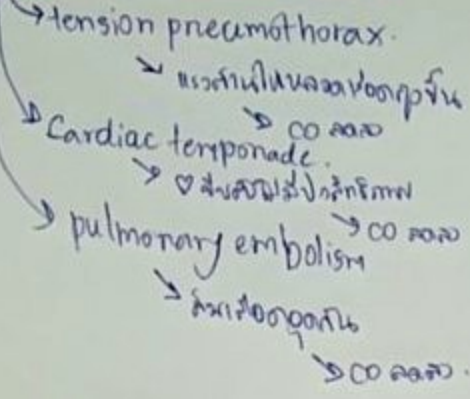 tension pneumothorax.
แรงต้านในหลอดเลือดสูงขึ้น
CO ลดลง
Cardiac temponade.
♡ บีบแบบไม่มีประสิทธิภาพ
CO ลดลง
pulmonary embolism
ลิ่มเลือดอุดตัน
CO ลดลง.